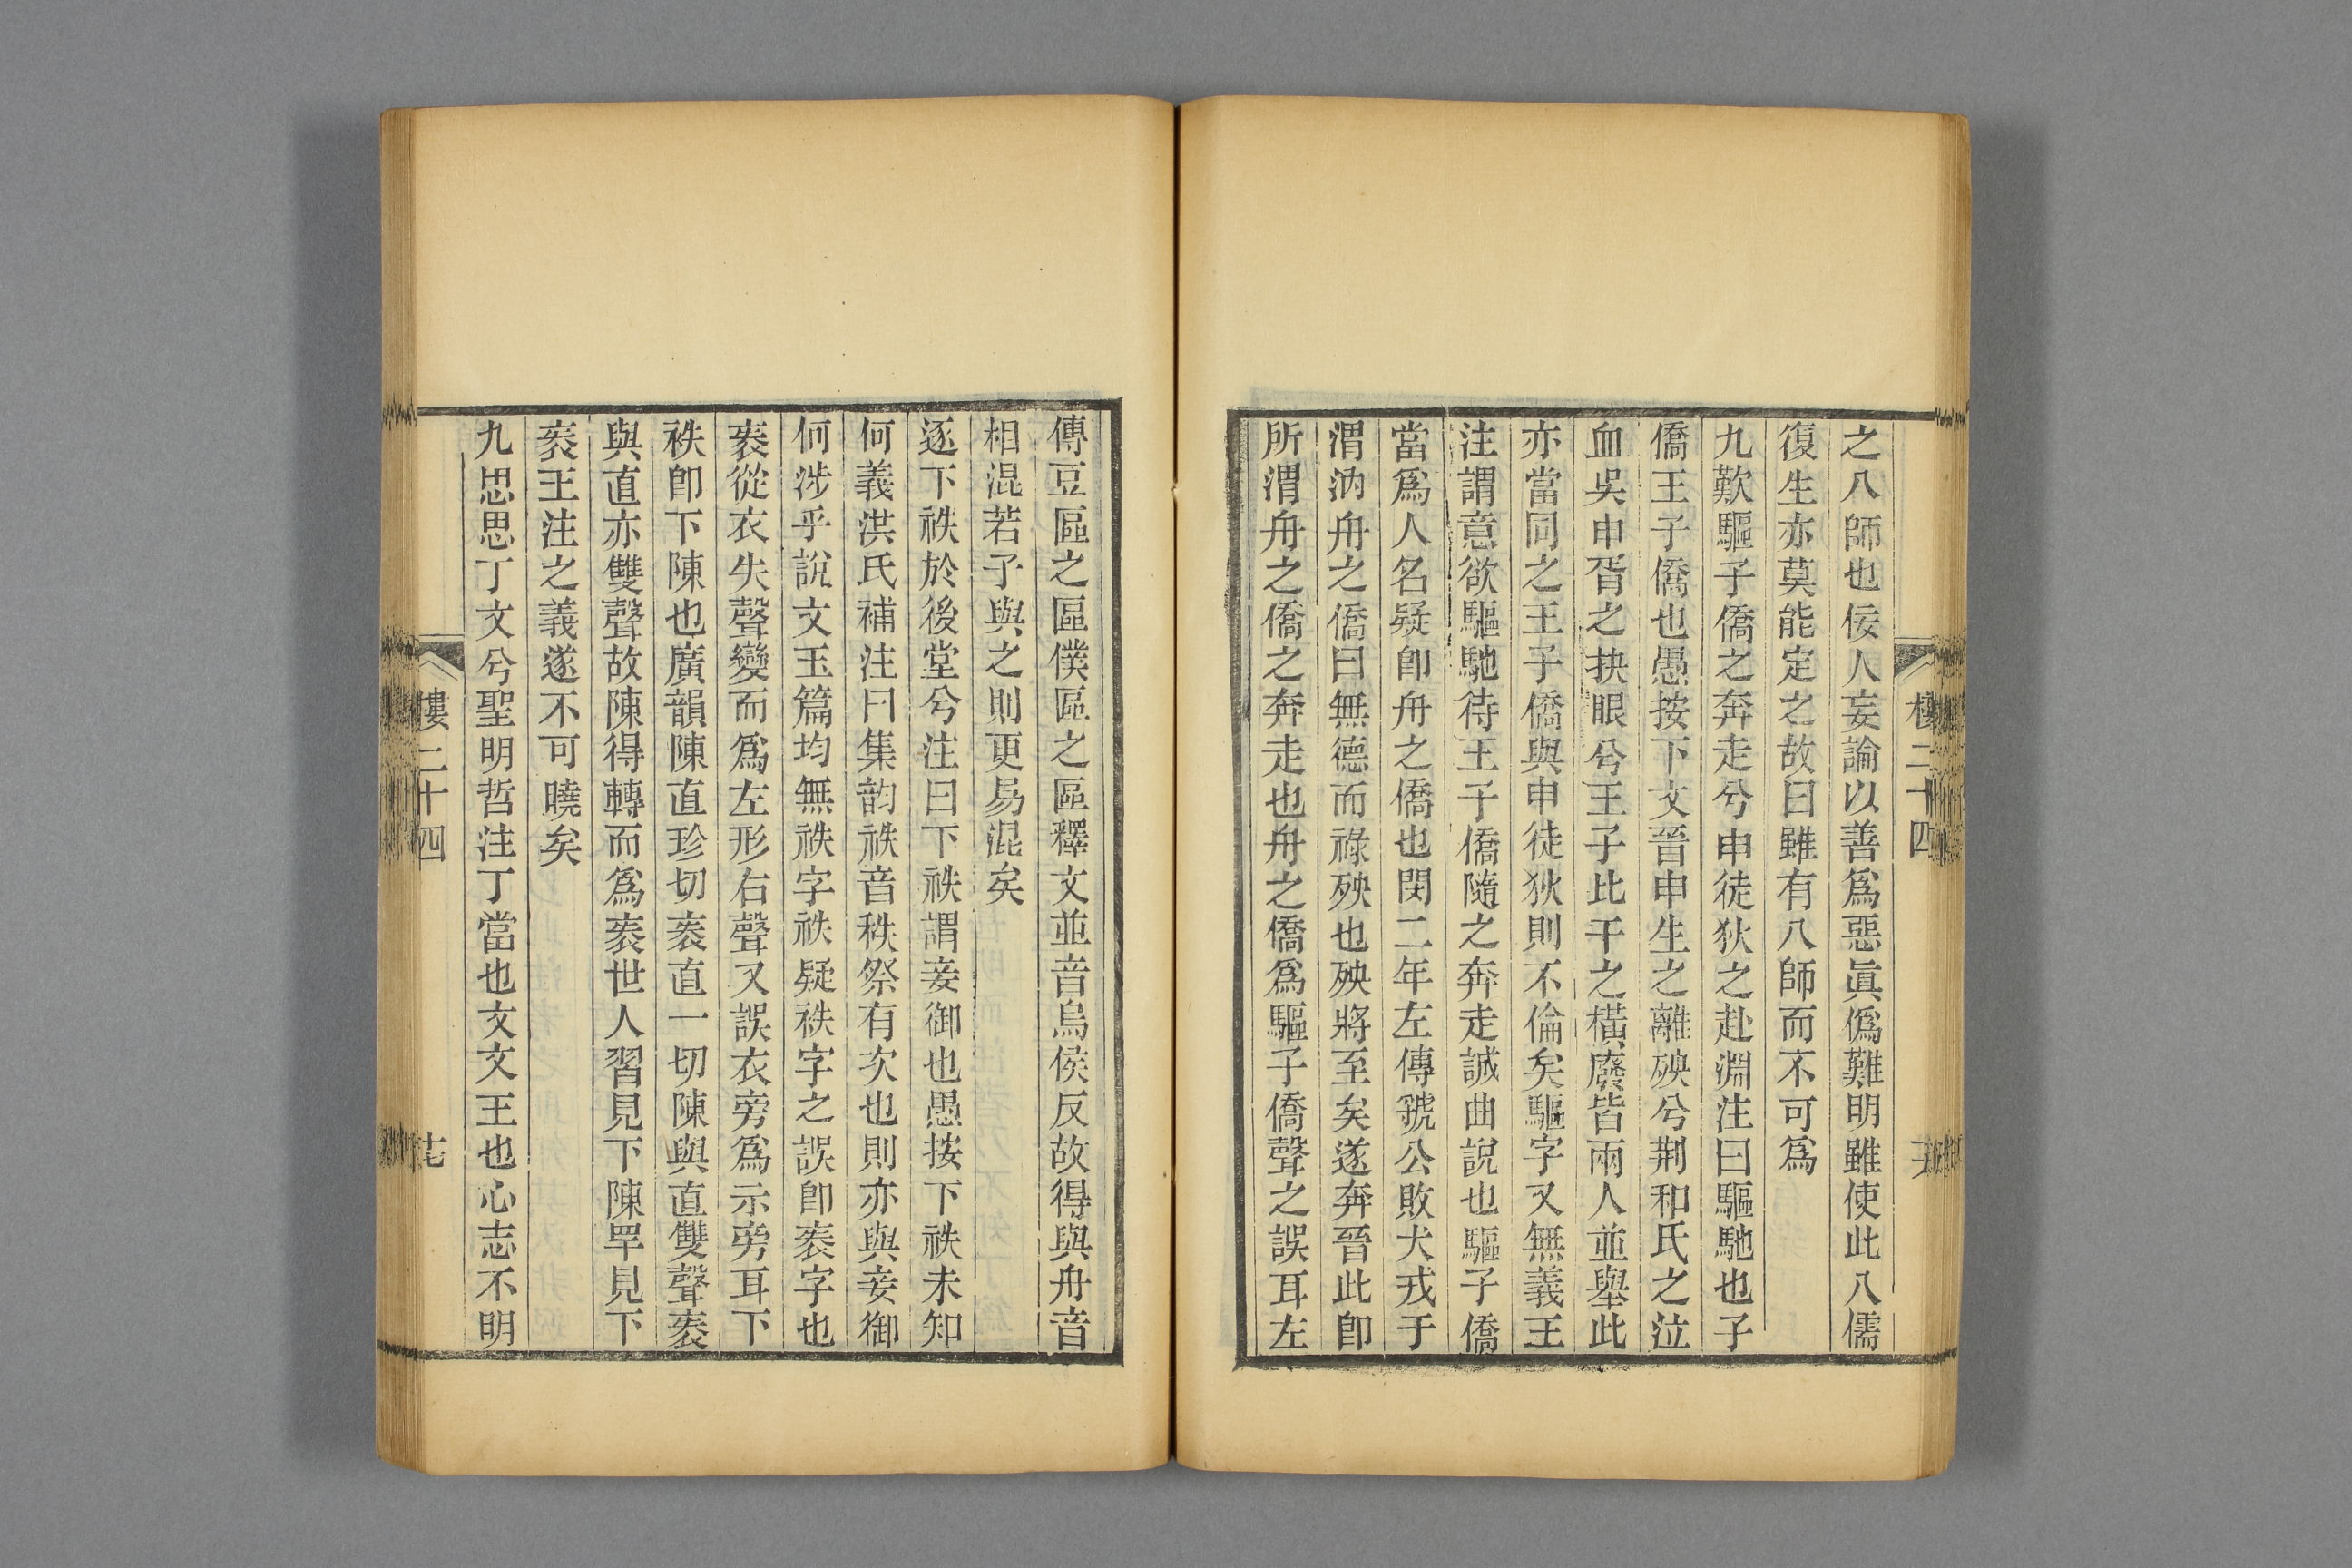 樓二十四
之八師也佞人妄論以善爲惡眞僞難明雖使此八儒
復生亦莫能定之故曰雖有八師而不可爲
九歎驅子僑之奔走兮申徒狄之赴淵注曰驅馳也子
僑王子僑也愚按下文晉申生之離殃兮荆和氏之泣
血吳申胥之抉眼兮王子比干之橫廢皆兩人並舉此
亦當同之王子僑與申徒狄則不倫矣驅字又無義王
注謂意欲驅馳待王子僑隨之奔走誠曲說也驅子僑
當爲人名疑卽舟之僑也閔二年左傳虢公敗犬戎于
渭汭舟之僑曰無德而祿殃也殃將至矣遂奔晉此卽
所渭舟之僑之奔走也舟之僑爲驅子僑聲之誤耳左
傳豆區之區僕區之區釋文並音烏侯反故得與舟音
相混若子與之則更易混矣
逐下袟於後堂兮注曰下袟謂妾御也愚按下袟未知
何義洪氏補注曰集韵袟音秩祭有次也則亦與妾御
何涉乎說文玉篇均無袟字袟疑袟字之誤卽袠字也
袠從衣失聲變而爲左形右聲又誤衣旁爲示旁耳下
袟卽下陳也廣韻陳直珍切袠直一切陳與直雙聲袠
與直亦雙聲故陳得轉而爲袠世人習見下陳罕見下
袠王注之義遂不可曉矣
九思思丁文兮聖明哲注丁當也文文王也心志不明
樓二十四
十七